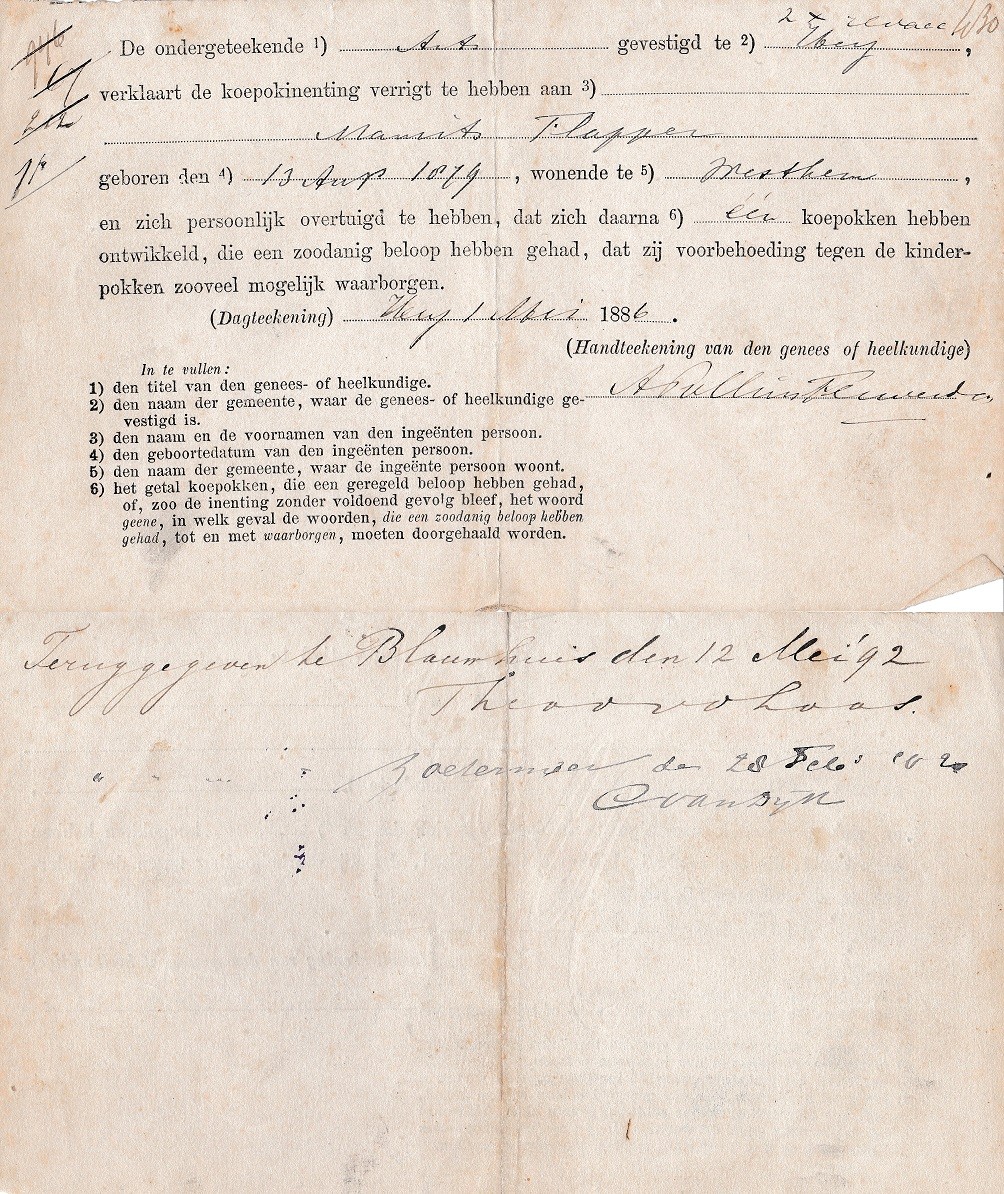 De ondergeteekende 1) Arts gevestigd te 2) IJbrg,
verklaart de koepokinenting verrigt te hebben aan 3)
Maurits Flapper
geboren den 4) 13 Aug 1879, wonende te 5) Westhem,
en zich persoonlijk overtuigd te hebben, dat zich daarna 6) één koepokken hebben
ontwikkeld, die een zoodanig beloop hebben gehad, dat zij voorbehoeding tegen de kinder-
pokken zooveel mogelijk waarborgen.
(Dagteekening) 1 Mei 1886.
(Handteekening van den genees of heelkundige)
In te vullen:
1) den titel van den genees- of heelkundige.
2) den naam der gemeente, waar de genees- of heelkundige ge-
vestigd is.
3) den naam en de voornamen van den ingeënten persoon.
4) den geboortedatum van den ingeënten persoon.
5) den naam der gemeente, waar de ingeënte persoon woont.
6) het getal koepokken, die een geregeld beloop hebben gehad,
of, zoo de inenting zonder voldoend gevolg bleef, het woord
geene, in welk geval de woorden, die een zoodanig beloop hebben
gehad, tot en met waarborgen, moeten doorgehaald worden.
Teruggegeven te Blauwhuis den 12 Mei '92
Zoetermeer de 28 Feb
C van Dijk